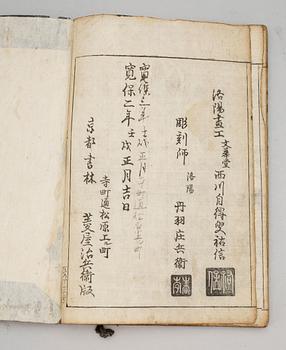 洛陽畫工 文華堂 西川自得叟祐信
彫刻師 洛陽 丹羽庄兵衞
寛保二年壬戌正月
寛保二年壬戌正月吉日
寺町通松原上ル町
京都書林 菱屋治兵衞版